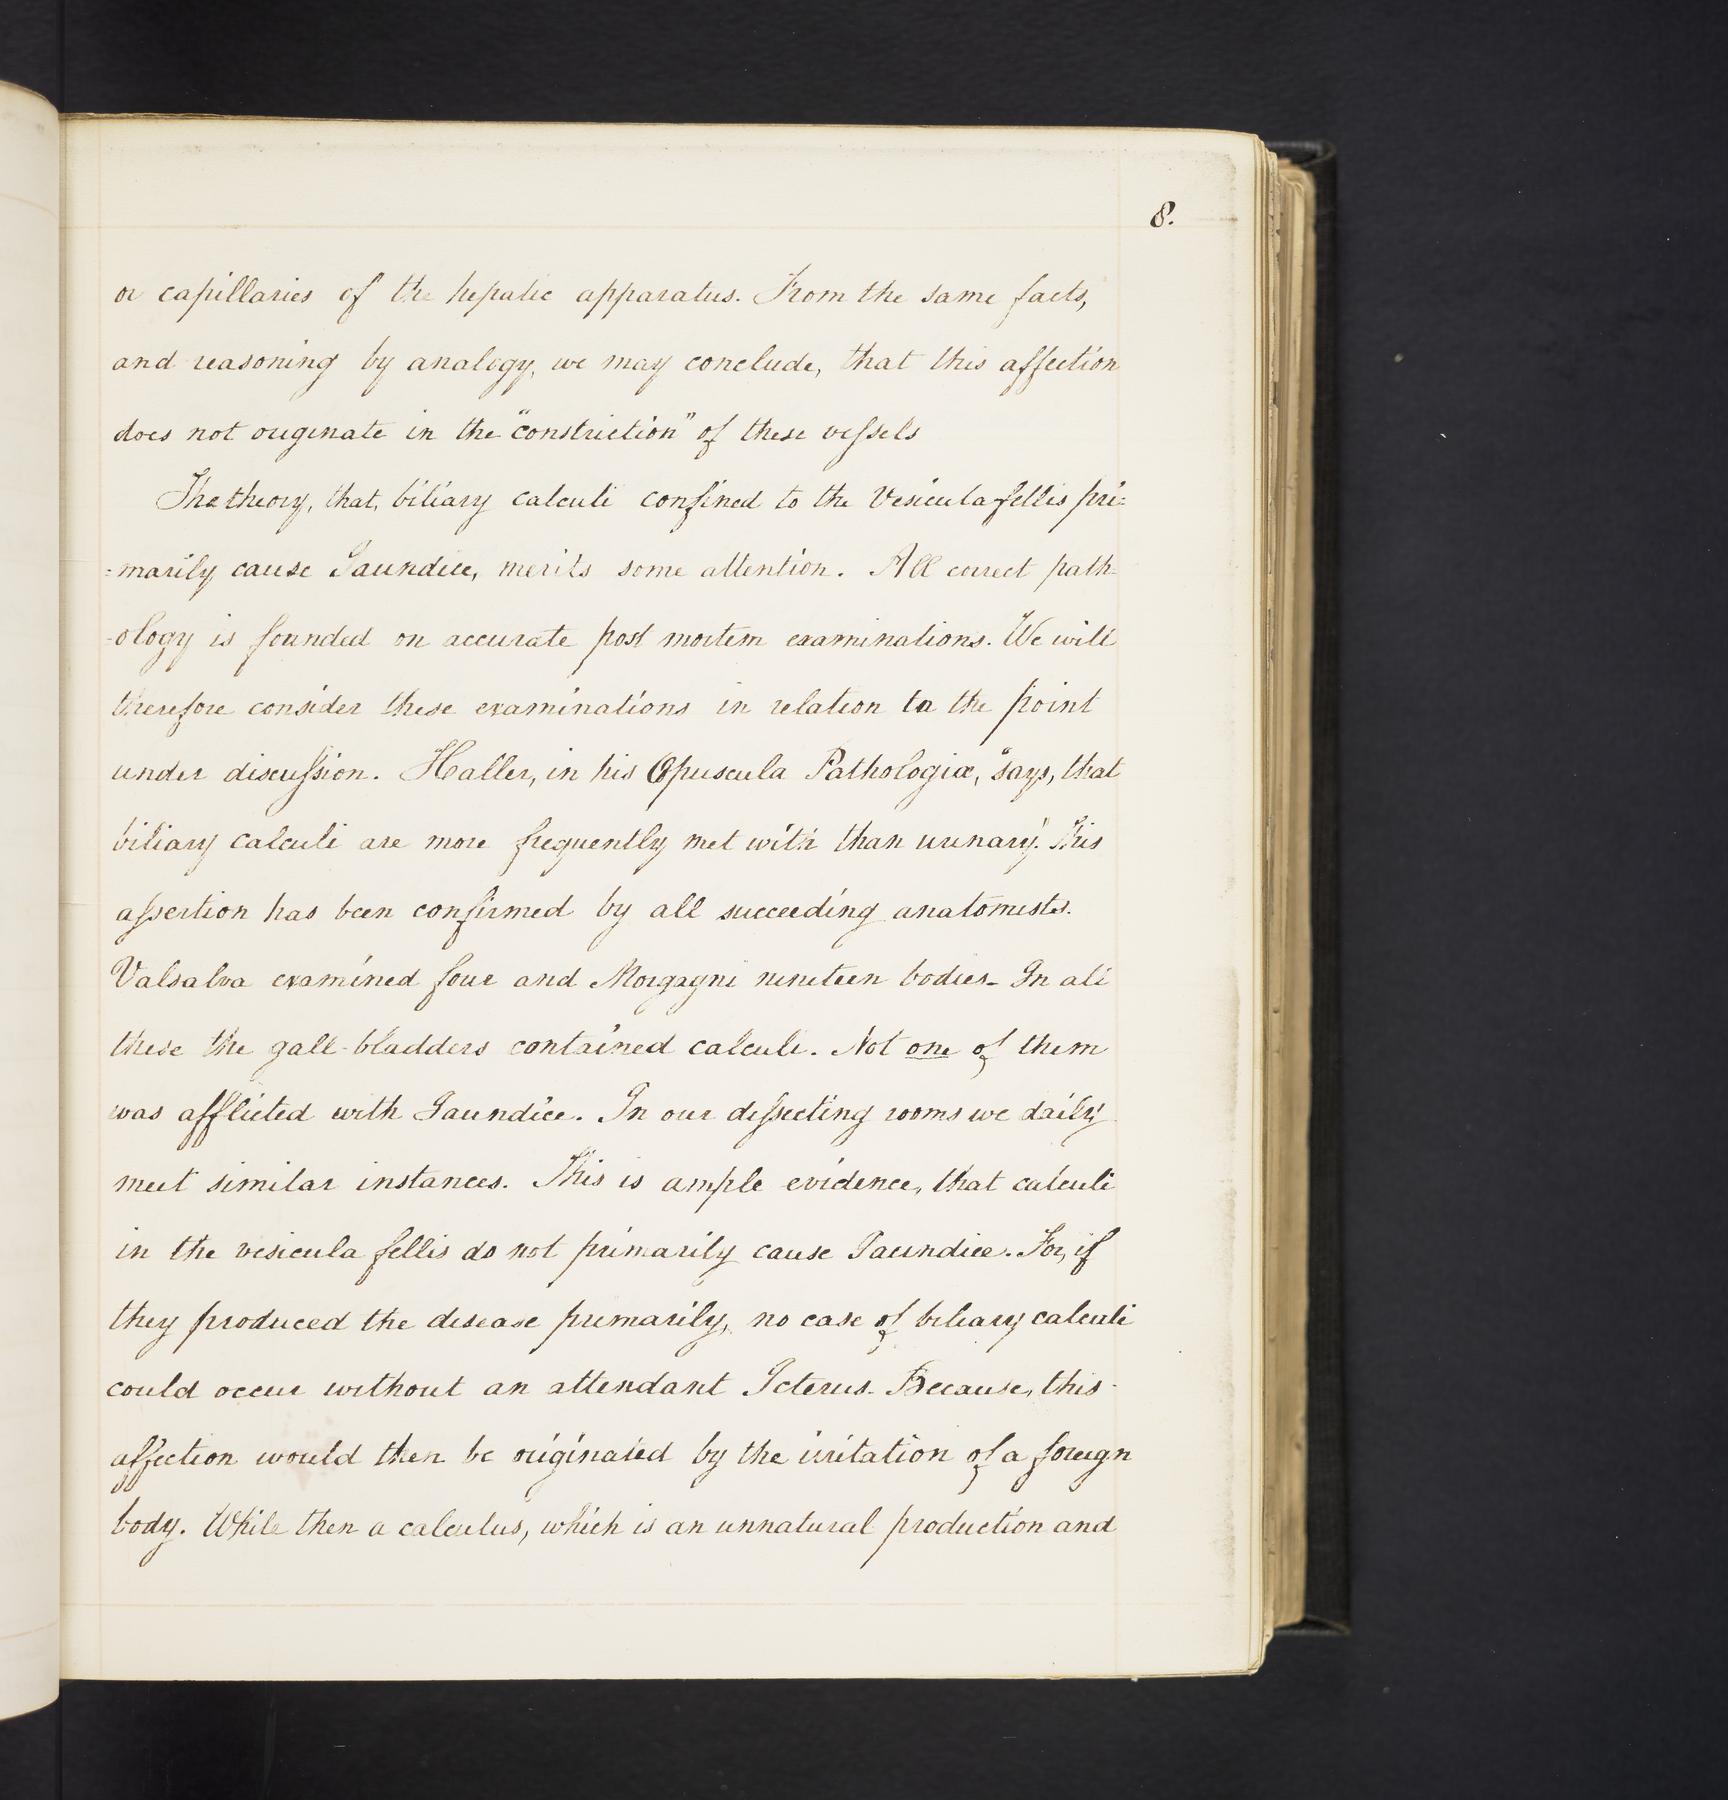 8.
or capillaries of the hepatic apparatus. From the same facts,
and reasoning by analogy, we may conclude, that this affection
does not originate in the "constriction" of these vessels
The theory, that, biliary calculi confined to the Vesicula fellis pri=
=marily cause Jaundice, merits some attention. All correct path-
-ology is founded on accurate post mortem examinations. We will
therefore consider these examinations in relation to the point
under discussion. Haller, in his Opuscula Pathologiæ, says, "that
biliary calculi are more frequently met with than urinary." This
assertion has been confirmed by all succeeding anatomists.
Valsalva examined four and Morgagni nineteen bodies - In all
these the gall-bladders contained calculi. Not one of them
was afflicted with Jaundice. In our dissecting rooms we daily
meet similar instances. This is ample evidence, that calculi
in the vesicula fellis do not primarily cause Jaundice. For, if
they produced the disease primarily, no case of biliary calculi
could occur without an attendant Icterus. Because, this
affection would then be originated by the irritation of a foreign
body. While then a calculus, which is an unnatural production and